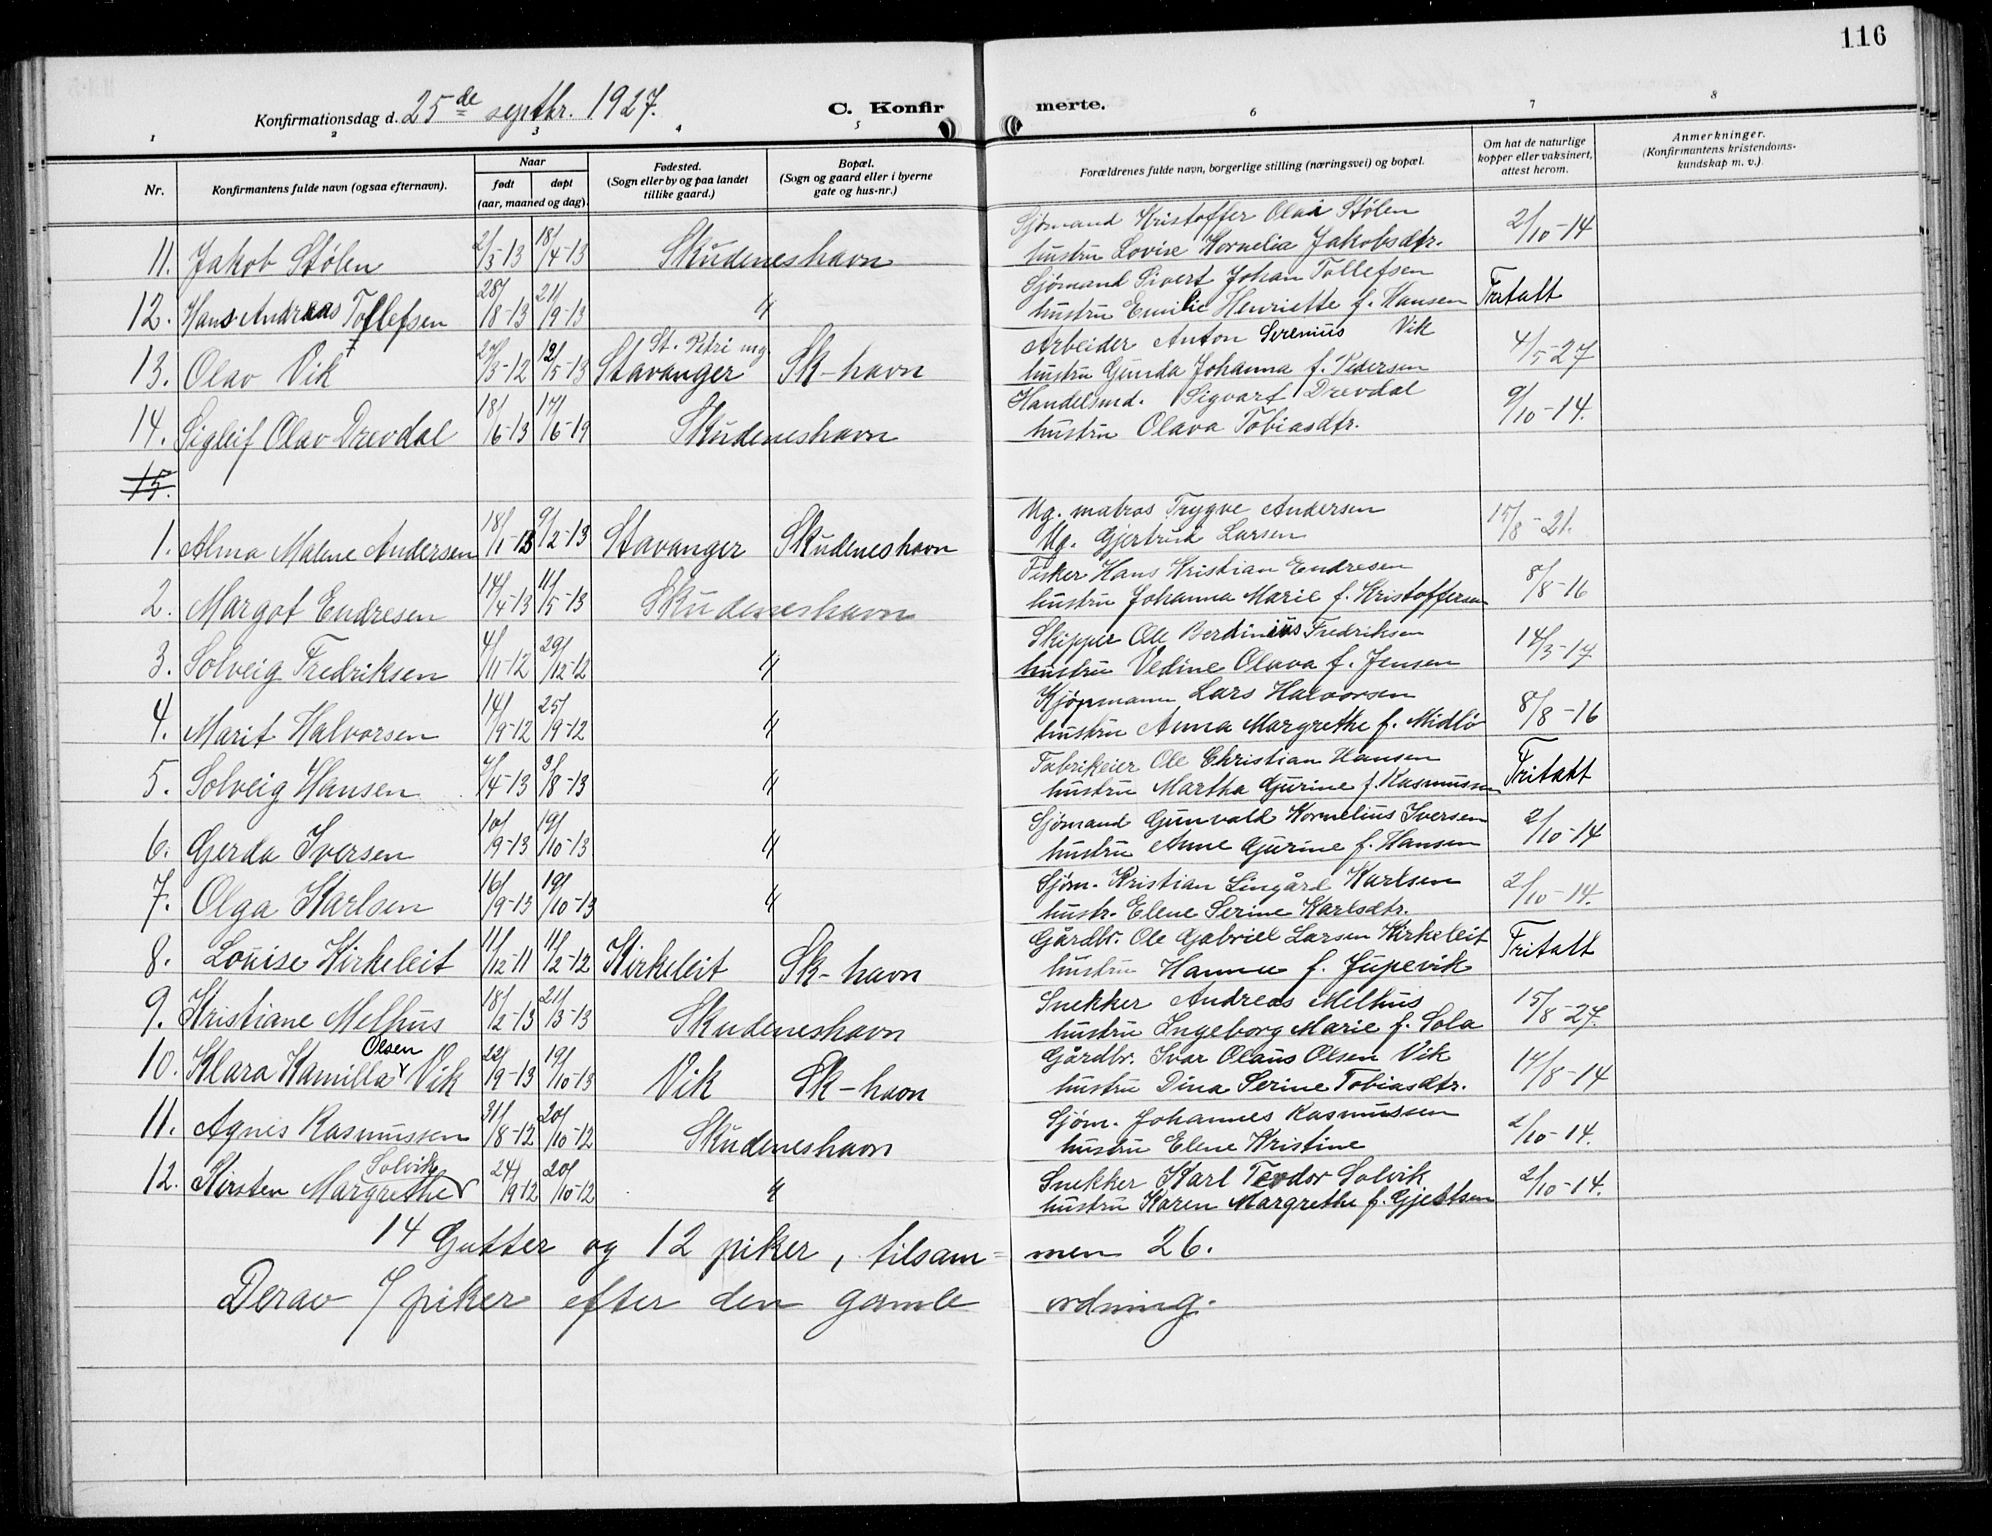 116
Konfirmationsdag d. 25de septbr. 1927. C. Konfirmerte.
1 2 3 4 5 6 7 8
Nr. Konfirmantens fulde navn (ogsaa efternavn). Naar født døpt (aar, maaned og dag). Fødested. (Sogn eller by og paa landet tillike gaard.) Bopæl. (Sogn og gaard eller i byerne gate og hus-nr.) Forældrenes fulde navn, borgerlige stilling (næringsvei) og bopæl. Om hat de naturlige kopper eller vaksinert, attest herom. Anmerkninger. (Konfirmantens kristendomskundskap m. v.).
Sjømand Kristoffer Olai Stølen
11. Jakob Stølen 2/3-13 18/4-13 Skudeneshavn hustru Lovise Kornelia Jakobsdtr. 2/10-14
Sjømand Sivert Johan Tollefsen
12. Hans Andreas Tollefsen 28/8-13 21/9-13 " hustru Emilie Henriette f. Hansen Fritatt
St. Petri mg. Arbeider Anton Serenius Vik
13. Olav Vik 27/3-12 12/5-13 Stavanger Sk-havn hustru Gunda Johanna f. Pedersen 4/5-27
Handelsmd. Sigvart Drevdal
14. Sigleif Olav Drevdal 18/6-13 17/6-19 Skudeneshavn hustru Olava Tobiasdtr. 9/10-14.
15.
Ug. matros Trygve Andersen
1. Alma Malene Andersen 18/1-13 9/2-13 Stavanger Skudeneshavn Ug. Gjertrud Larsen 15/8-21.
Fisker Hans Kristian Endresen
2. Margot Endresen 14/4-13 11/5-13 Skudeneshavn hustru Johanna Marie f. Kristoffersen 8/8-16
Skipper Ole Berdinius Fredriksen
3. Solveig Fredriksen 4/11-12 29/12-12 " hustru Vedine Olava f. Jensen 14/3-17
Kjøpmann Lars Halvorsen
4. Marit Halvorsen 14/9-12 25/9-12 " hustru Anna Margrethe f. Midbø 8/8-16
Fabrikeier Ole Christian Hansen
5. Solveig Hansen 7/4-13 3/8-13 " hustru Martha Gurine f. Rasmussen Fritatt
Sjømand Gunvald Kornelius Iversen
6. Gerda Iversen 10/9-13 19/10-13 " hustru Anne Gurine f. Hansen 2/10-14
Sjøm. Kristian Lingård Karlsen
7. Olga Karlsen 16/9-13 19/10-13 " hustr. Elene Serine Karlsdtr. 2/10-14.
Gårdbr. Ole Gabriel Larsen Kirkeleit
8. Louise Kirkeleit 11/12-11 11/2-12 Kirkeleit Sk-havn hustru Hanna f. Jupevik Fritatt
Snekker Andreas Melhus
9. Kristiane Melhus 18/2-13 21/3-13 Skudeneshavn hustru Ingeborg Marie f. Sola 15/8-27.
Olsen Gårdbr. Ivar Olaus Olsen Vik
10. Klara Kamilla Vik 22/9-13 19/10-13 Vik Sk-havn hustru Dina Serine Tobiasdtr. 14/8-14
Sjøm. Johannes Rasmussen
11. Agnes Rasmussen 31/8-12 20/10-12 Skudeneshavn hustru Elene Kristine 2/10-14.
Solvik Snekker Karl Teodor Solvik
12. Kirsten Margrethe 24/9-12 20/10-12 " hustru Karen Margrethe f. Gjertsen 2/10-14.
14 Gutter og 12 piker, tilsammen 26.
Derav 7 piker efter den gamle ordning.